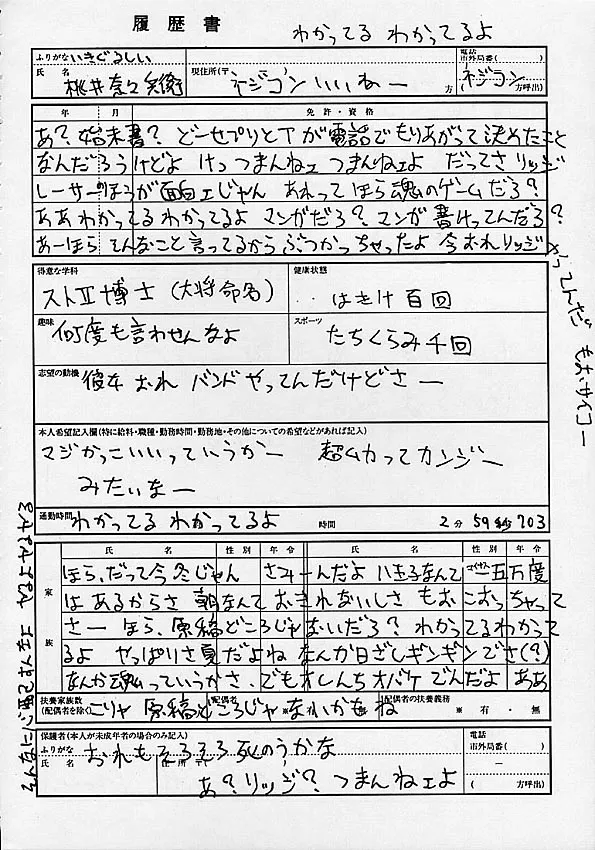 履歴書
わかってる わかってるよ
ふりがな いきぐるしい
氏名 桃井奈々
現住所(〒 ) ネジコンいいねー 方
電話
市外局番( )
ネジコン
( 方呼出)
年 月 免許・資格
あ?始末書? どーせプリとTが電話でもりあがって決めたこと
なんだろうけどよ けっ つまんねェ つまんねェよ だってさ リッジ
レーサーのほうが面白ェじゃん あれって ほら魂のゲームだろ?
ああ わかってる わかってるよ マンガだろ? マンガ書けってんだろ?
あーほら てんなこと言ってるからぶつかっちゃったよ 今おれリッジ
やってんだ もおサイコー
得意な学科
ストⅡ博士 (大将命名)
健康状態
‥はきけ百回
趣味
何度も言わせんなよ
スポーツ
たちくらみ千回
志望の動機
彼女 おれ バンドやってんだけどさー
本人希望記入欄(特に給料・職種・勤務時間・勤務地・その他についての希望などがあれば記入)
マジかっこいいっていうかー 超ムカってカンジー
みたいなー
通勤時間 わかってる わかってるよ 時間 2分 59秒703
家族
氏名 性別 年令 氏名 性別 年令
ほら、だって今冬じゃん さみーんだよ 八王子なんて 五万度
はあるからさ 朝なんて おきれないしさ もおこおっちゃって
さー ほら、原稿どころじゃないだろ? わかってるわかって
るよ やっぱりさ夏だよね なんか日ざしギンギンでさ(?)
なんか魂っていうかさ、でもオレんちオバケでんだよ ああ
扶養家族数
(配偶者を除く)
配偶者
配偶者の扶養義務
こりゃ 原稿どころじゃないかもね
※ ※ 有・無
保護者(本人が未成年者の場合のみ記入)
ふりがな
氏名
住所(〒
おれもそろそろ死のうかな
あ?リッジ? つまんねェよ
電話
市外局番( )
( 方呼出)
そんなに心配すんなよ やるよ やるよ